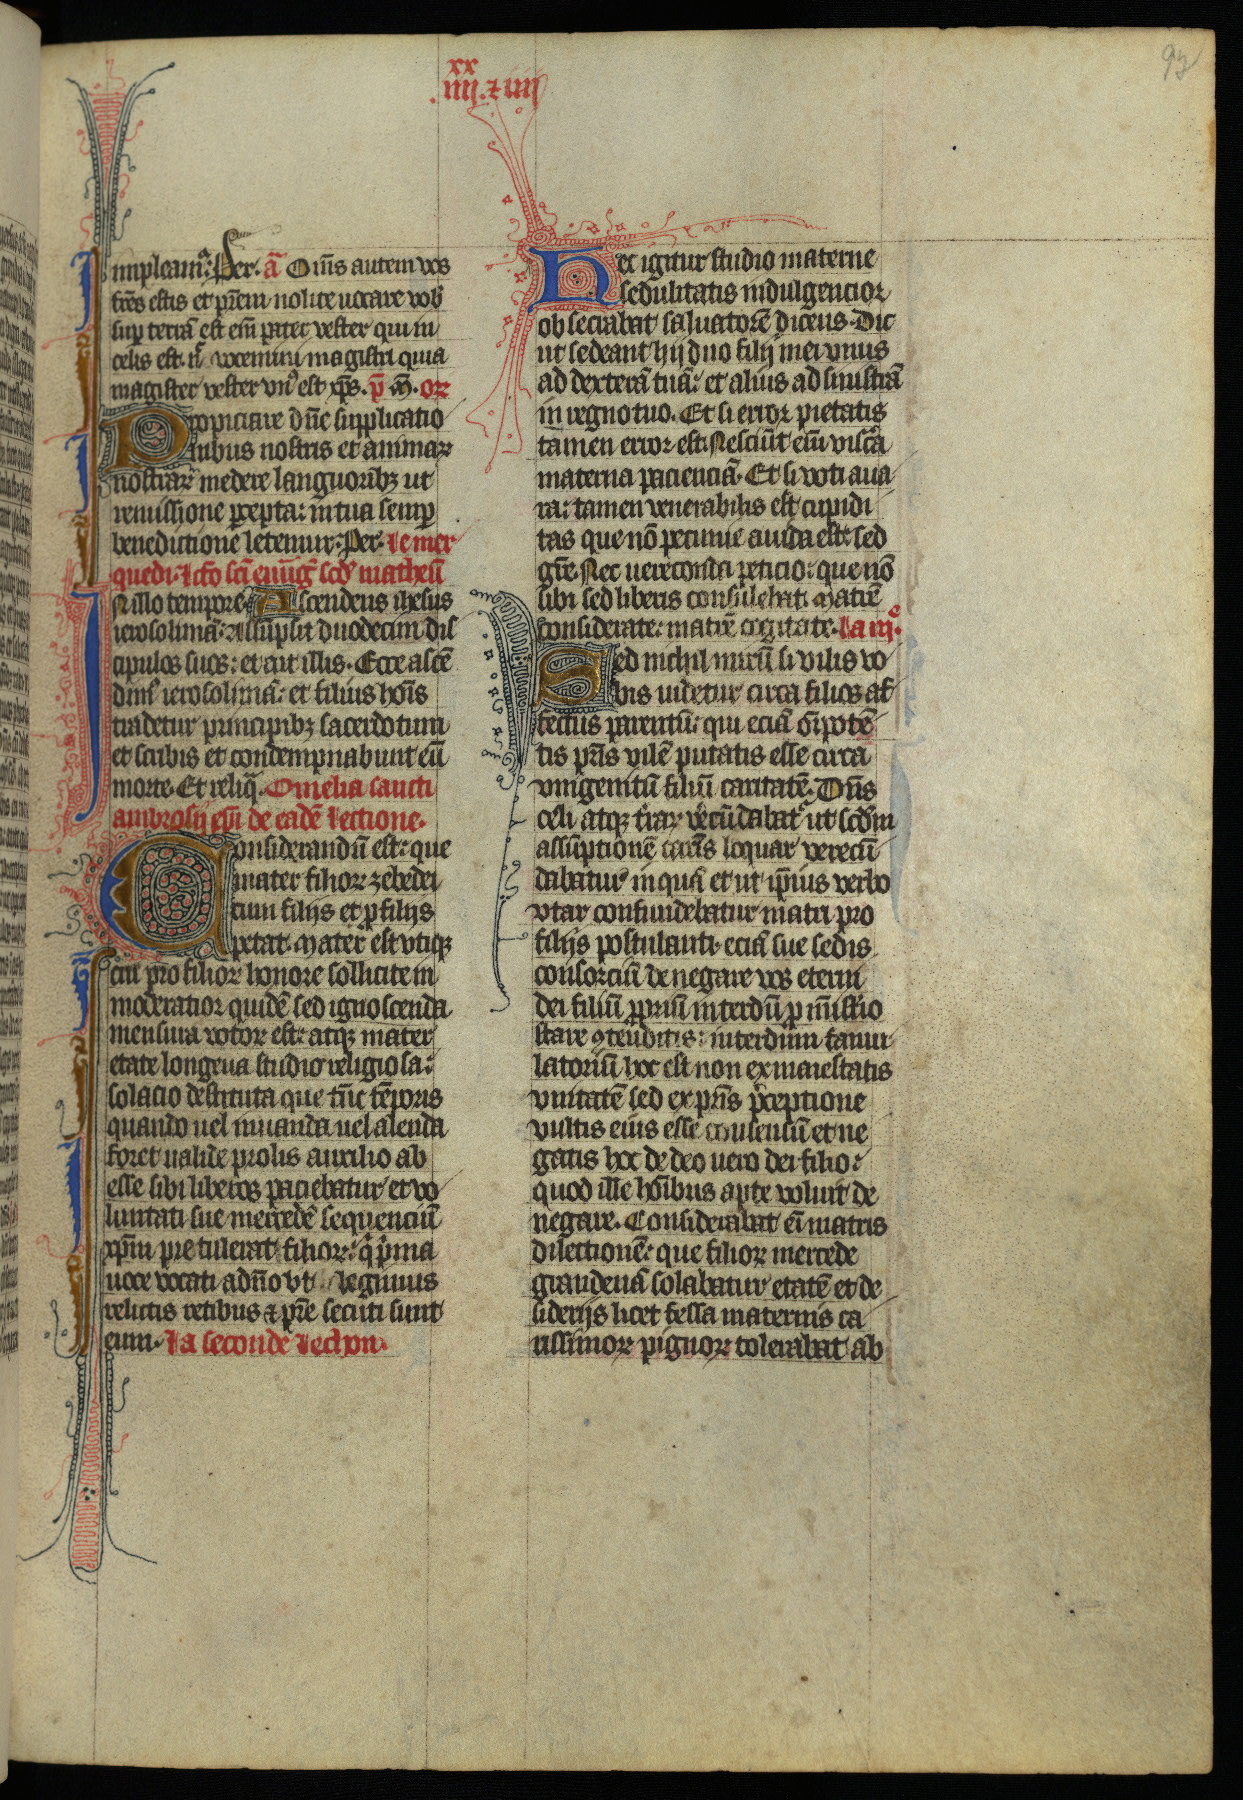 93
xx
.iiii. ⁊ .iiii.
impleam᷑. Per. a᷑ Om̄s autem vos
fr̄es estis et pr̄em nolite uocare vob̾
sup̱ terrā est eni᷑ pater vester qui in
celis est. n̄ vocemini magistri quia
magister vester vn᷒ est xp̄s. p̄ or᷑
Propiciare dn̄e supplicatio
nibus nostris et animarꝝ
nostrarꝝ medere languoribꝫ ut
remissione p̱cepta: in tua semp̱
benedictione letemur. Per. le mer
quedi. lcō sc̄i euu̅ḡ scd̾ matheū
In illo tempore. Ascendens ihesus
ierosolimā. Assupsit duodecim dis
cipulos suos: et ait illis. Ecce ascē
dim᷒ ierosolimā: et filius hōis
tradetur principibꝫ sacerdotum
et scribis et condempnabunt eū
morte. Et reliq̄. Omelia sancti
ambrosij ep̄i de eadē lectione.
Considerandū est: que
mater filiorꝝ zebedei
cum filijs et p̱ filijs
petat. Mater est vtiqꝫ
cui pro filiorꝝ honore sollicite in
moderatior quidē sed ignoscenda
mensura votorꝝ est: atqꝫ mater
etate longeua studio religiosa:
solacio destituta que tūc tēporis
quando uel iuuanda uel alenda
foret ualide prolis auxilio ab
esse sibi liberos paciebatur et vo
luntati sue mercedē sequenciū
xp̄m pretulerat filiorꝝ: q̄ p̄ma
uoce vocati a dn̄o vt legimus
relictis retibus & pr̄e secuti sunt
eum. La seconde lechon.
Hec igitur studio materne
sedulitatis indulgencior
obsecrabat saluatorē dicens. Dic
ut sedeant hij duo filij mei vnus
ad dexterā tuā: et alius ad sinistrā
in regno tuo. Et si error pietatis
tamen error est. Nesciūt eni᷑ viscā
materna pacienciā. Et si voti aua
ra: tamen venerabilis est cupidi
tas que nō pecunie auida est: sed
gr̄e. Nec uereconda peticio: que nō
sibi sed liberis consulebat. Matrē
considerate: matrē cogitate. la iij͛.
Sed nichil mirū si vilis vo
bis uidetur circa filios af
fectus parentū: qui eciā om̄ipotē
tis pr̄is vilē putatis esse circa
vnigenitū filiū caritatē. Dn̄s
celi atqꝫ t̄rarꝝ verecūdabat᷑ ut scd̾m
assūptionē carn̄s loquar verecū
dabatur inquā et ut ip̄ius verbo
vtar confundebatur matri pro
filijs postulanti eciā sue sedis
consorciū denegare vos eterni
dei filiū p̱priū interdū p̱ missio
stare ꝯtenditis: interdum famu
latoriū hoc est non ex maiestatis
vnitatē sed ex pr̄is p̄ceptione
vultis eius esse consensū et ne
gatis hoc de deo uero dei filio:
quod ille hōibus apte voluit de
negare. Considerabat eī matris
dilectionē: que filiorꝝ mercede
grandeuā solabatur etatē et de
siderijs licet fessa maternis ca
rissimorꝝ pignorꝝ tolerabat ab